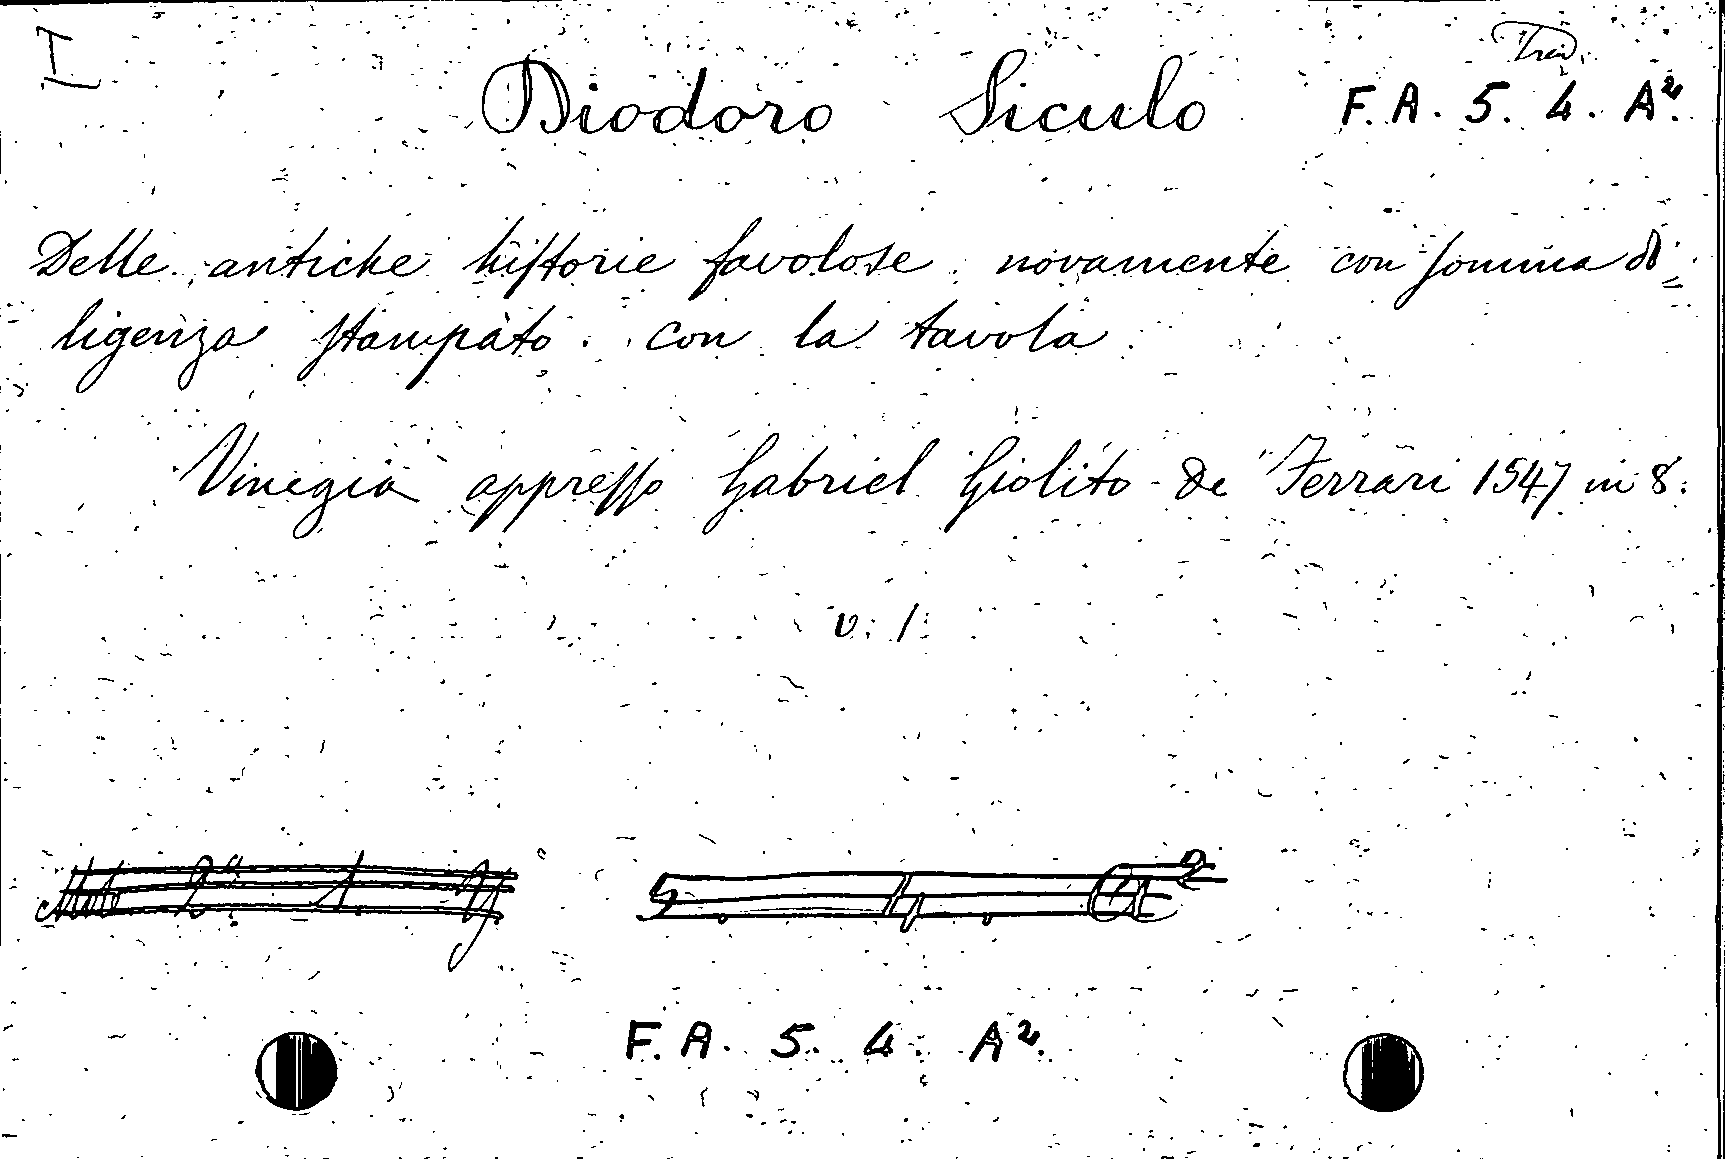 I
Trad.
Diodoro Siculo F. A. 5. 4. A².
Delle antiche historie favolose novamente con somma di=
ligenza stampato. con la tavola
Vinegia appresso Gabriel Giolito de Ferrari 1547 in 8.
v. 1.
5. 4. A²
F. A. 5. 4. A².